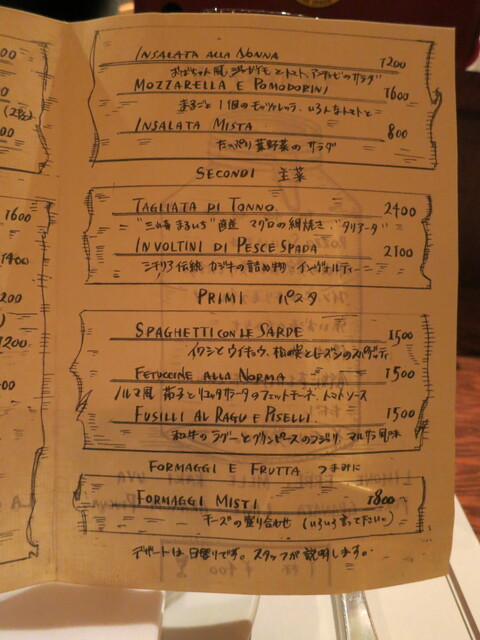 INSALATA ALLA NONNA 1200
おばあちゃん風 じゃがいもとトマト、アンチョビのサラダ
MOZZARELLA E POMODORINI 1600
まるごと1個のモッツァレッラ、いろんなトマトと
INSALATA MISTA 800
たっぷり葉野菜のサラダ
SECONDI 主菜
TAGLIATA DI TONNO 2400
"三崎 まるいち"直送 マグロの網焼き、"タリアータ"
INVOLTINI DI PESCE SPADA 2100
シチリア伝統 カジキの詰め物 インヴォルティーニ
PRIMI パスタ
SPAGHETTI CON LE SARDE 1500
イワシとウイキョウ、松の実とレーズンのスパゲッティ
FETUCCINE ALLA NORMA 1500
ノルマ風 茄子とリコッタサラータのフェットチーネ、トマトソース
FUSILLI AL RAGU E PISELLI 1500
和牛のラグーとグリンピースのフジッリ マルサラ風味
FORMAGGI E FRUTTA つまみに
FORMAGGI MISTI 1800
チーズの盛り合わせ (いろいろ言って下さい)
デザートは日替りです。スタッフが説明します。
1600
1400
1200
1200